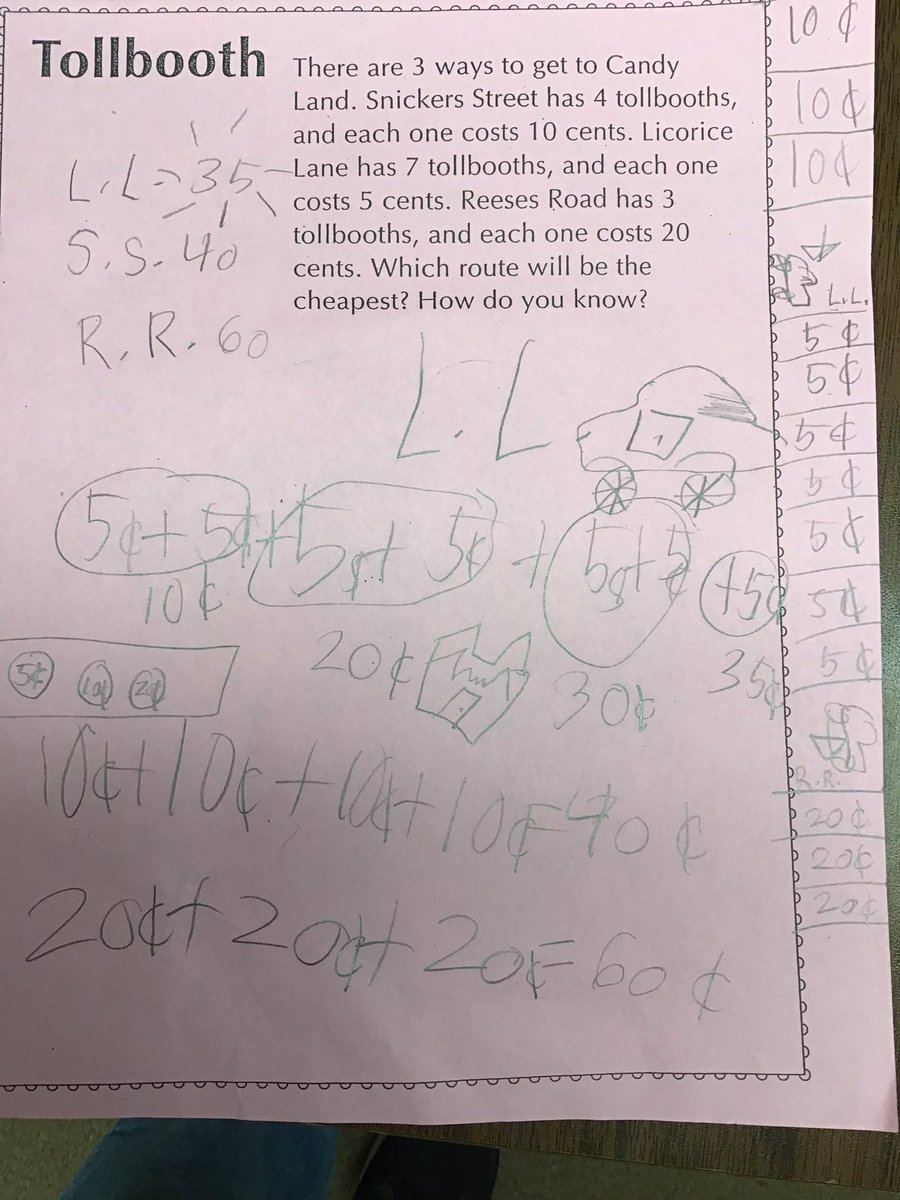 Tollbooth
There are 3 ways to get to Candy
Land. Snickers Street has 4 tollbooths,
and each one costs 10 cents. Licorice
Lane has 7 tollbooths, and each one
costs 5 cents. Reeses Road has 3
tollbooths, and each one costs 20
cents. Which route will be the
cheapest? How do you know?
L.L → 35
S.S. 40
R.R. 60
L.L
5¢+ 5¢+5¢+ 5¢ + 5¢+5¢ +5¢
10¢
20¢
30¢
35¢
5¢ 10¢ 20¢
10¢+10¢+10¢+10¢=40¢
20¢+20¢+20¢=60¢
10¢
10¢
10¢
L.L.
5¢
5¢
5¢
5¢
5¢
5¢
5¢
R.R.
20¢
20¢
20¢